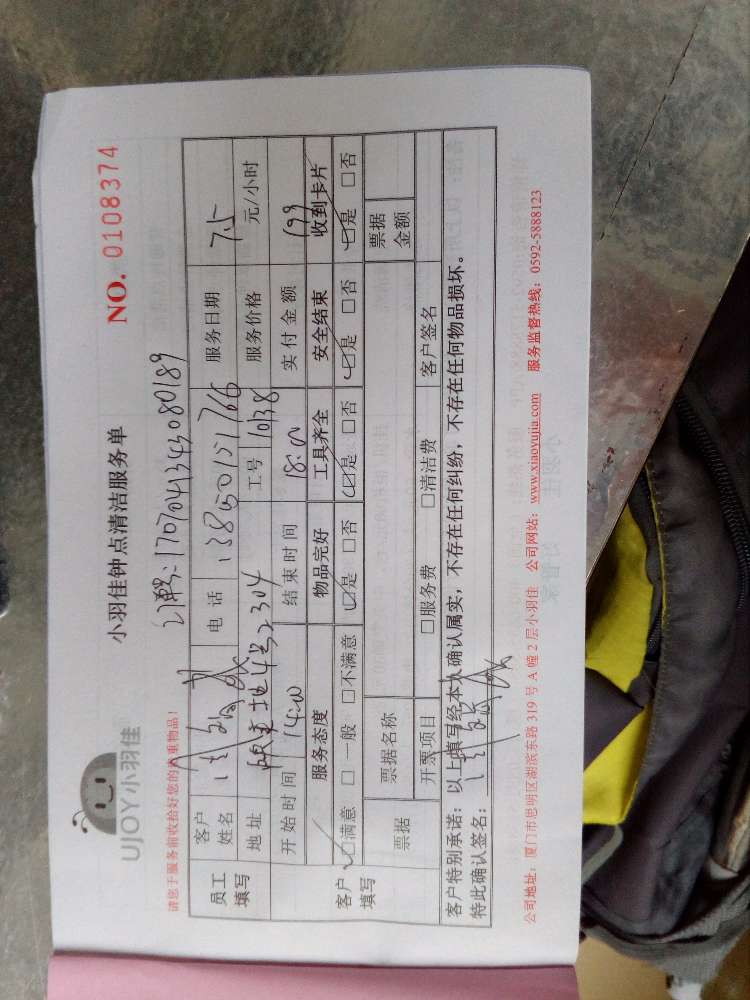 UJOY小羽佳
小羽佳钟点清洁服务单
NO. 0108374
请您于服务前收拾好您的贵重物品！
订单号：1707041343080189
员工填写
客户姓名 电话 13850151766 服务日期 7.5
地址 4号2304 工号 1038 服务价格 元/小时
开始时间 14:00 结束时间 18:00 实付金额 199
客户填写
服务态度 物品完好 工具齐全 安全结束 收到卡片
☑满意 □一般 □不满意 ☑是 □否 ☑是 □否 ☑是 □否 ☑是 □否
票据 票据名称 票据金额
开票项目 □服务费 □清洁费 客户签名
客户特别承诺：以上填写经本人确认属实，不存在任何纠纷，不存在任何物品损坏。
特此确认签名：
公司地址：厦门市思明区湖滨东路 319 号 A 幢 2 层小羽佳 公司网站：www.xiaoyujia.com 服务监督热线：0592-5888123